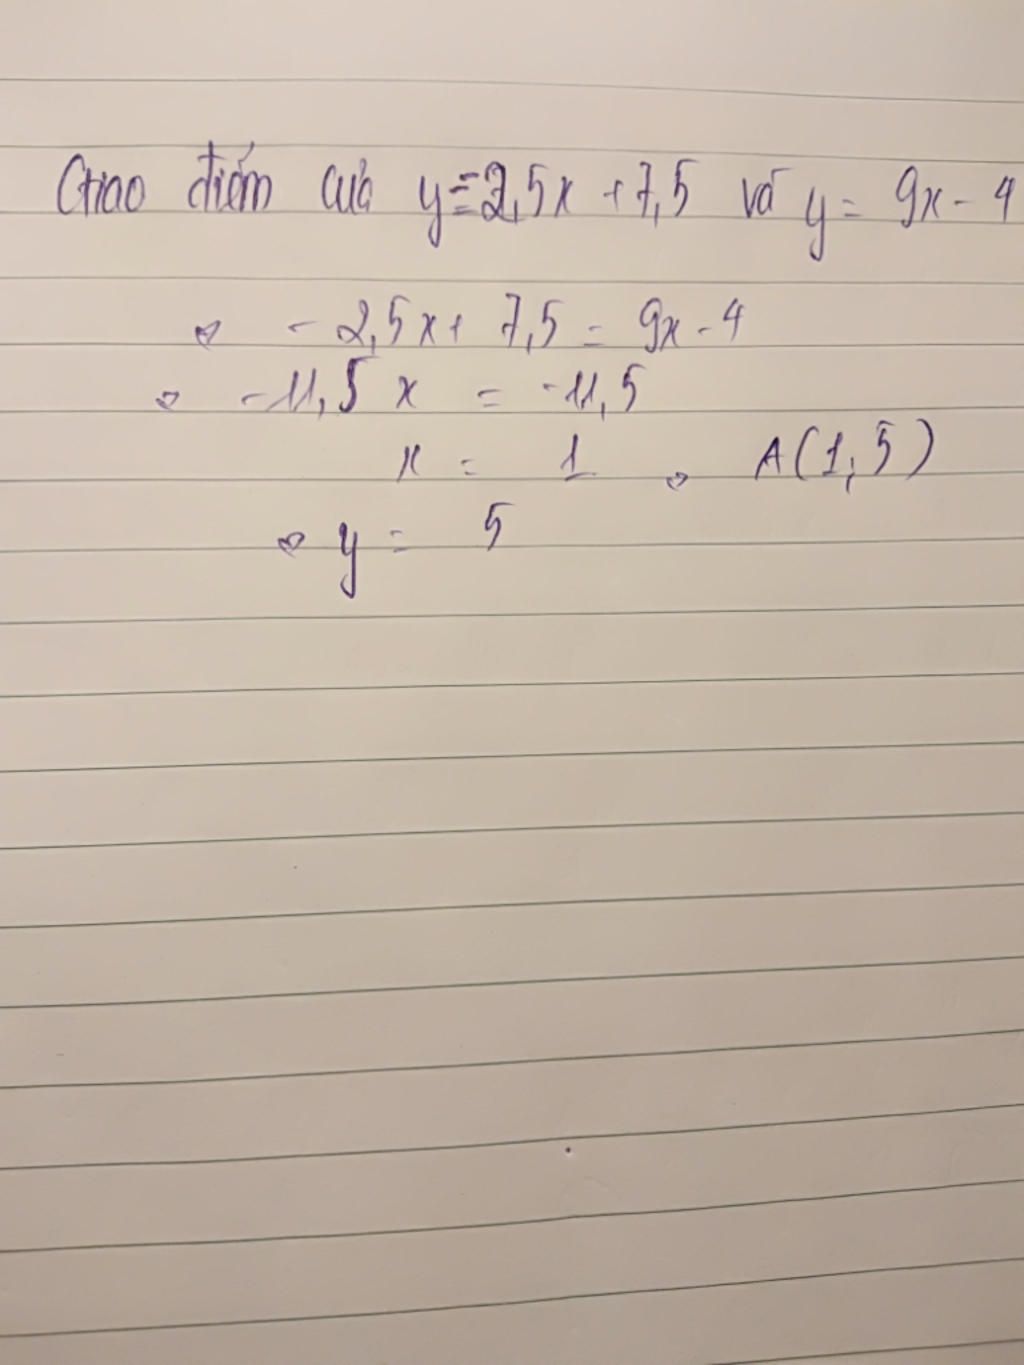 Giao điểm của y = -2,5x + 7,5 và y = 9x - 4
⇔ -2,5x + 7,5 = 9x - 4
⇔ -11,5 x = -11,5
x = 1 ⇒ A(1;5)
⇒ y = 5